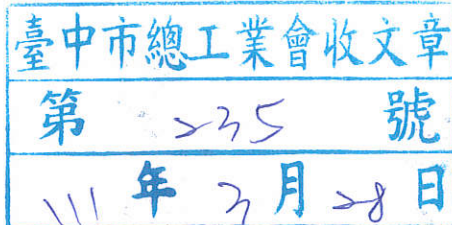 臺中市總工業會收文章
第 235 號
111年3月28日